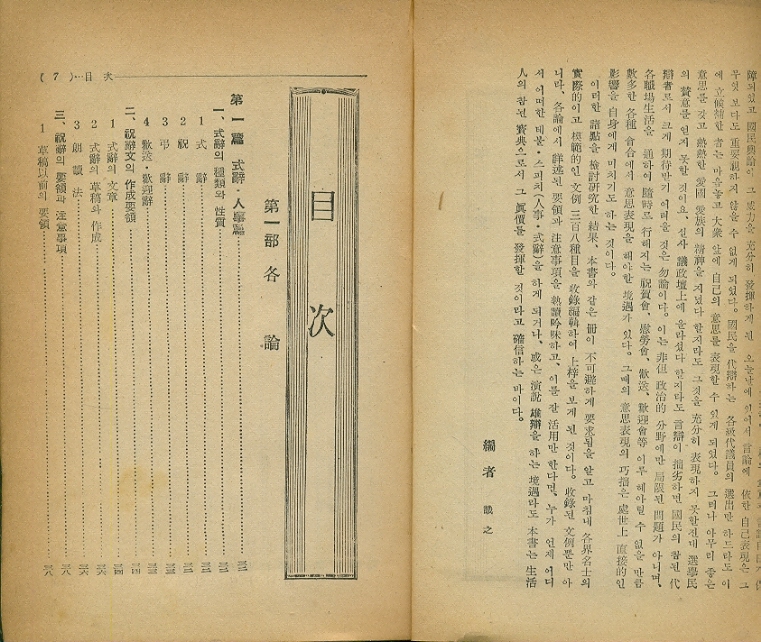 障되였고 國民輿論이 그 威力을 充分히 發揮하게 된 오늘날에 있어서 言論에 依한 自己表現은 그
무엇 보다도 重要視하지 않을 수 없게 되었다。國民을 代辯하는 各級代議員의 選出만 하드라도 이
에 立候補한 者는 마음놓고 大衆 앞에 自己의 意思를 表現할 수 있게 되였다。그러나 아무리 좋은
意思를 갖고 熱熱한 愛國 愛族의 精神을 지녔다 할지라도 그것을 充分히 表現하지 못할진대 選擧民
의 贊意를 얻지 못할 것이요、설사 議政壇上에 올라섰다 할지라도 言辯이 拙劣하면 國民의 참된 代
辯者로서 크게 期待받기 어려울 것은 勿論이다。이는 非但 政治的 分野에만 局限된 問題가 아니며、
各職場生活을 通하여 隨時로 行해지는 祝賀會、慰勞會、歡送、歡迎會等 이루 헤아릴 수 없을 만큼
數多한 各種 會合에서 意思表現을 해야할 境遇가 있다。그때의 意思表現의 巧拙은 處世上 直接的인
影響을 自身에게 미치기도 하는 것이다。
이러한 諸點을 檢討硏究한 結果、本書와 같은 冊이 不可避하게 要求됨을 알고 마침내 各界名士의
實際的이고 模範的인 文例 三百八種目을 收錄編輯하여 上梓을 보게 된 것이다。收錄된 文例뿐만 아
니라、各論에서 詳述된 要領과 注意事項을 熟讀吟味하고、이를 잘 活用만 한다면、누가 언제 어디
서 어떠한 테불・스피치(人事・式辭)을 하게 되거나、或은 演說 雄辯을 하는 境遇라도 本書는 生活
人의 참된 寶典으로서 그 眞價를 發揮할 것이라고 確信하는 바이다。
編者 識之
( 7 )…目 次
目次
第一部 各論
第一篇 式辭・人事篇
一、式辭의 種類와 性質
1 式辭
2 祝辭
3 弔辭
4 歡送・歡迎辭
二、祝辭文의 作成要領
1 式辭의 文章
2 式辭의 草稿와 作成
3 朗讀法
三、祝辭의 要領과 注意事項
1 草稿以前의 要領